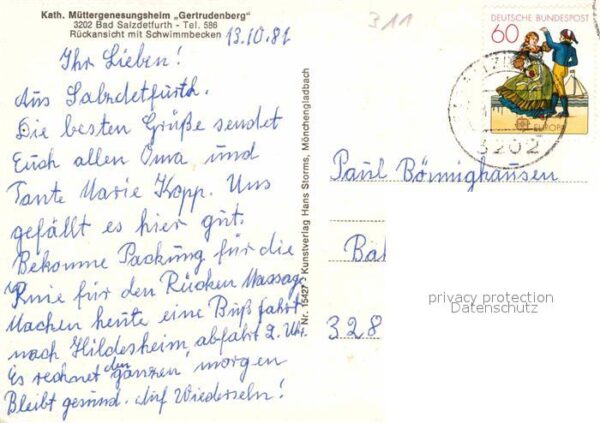 Kath. Müttergenesungsheim „Gertrudenberg"
3202 Bad Salzdetfurth - Tel. 586
Rückansicht mit Schwimmbecken
13.10.81
Ihr Lieben!
Aus Salzdetfurth.
Die besten Grüße sendet
Euch allen Oma und
Tante Marie Kopp. Uns
gefällt es hier gut.
Bekomme Packung für die
Knie für den Rücken Massag.
Machen heute eine Bußfahrt
nach Hildesheim, abfahrt 2. Uhr.
Es rechnet den ganzen morgen
Bleibt gesund. Auf Wiederseln!
Nr. 15427 - Kunstverlag Hans Storms, Mönchengladbach
311
DEUTSCHE BUNDESPOST
60
EUROPA
3202
Paul Bömighausen
Ba
328
privacy protection
Datenschutz